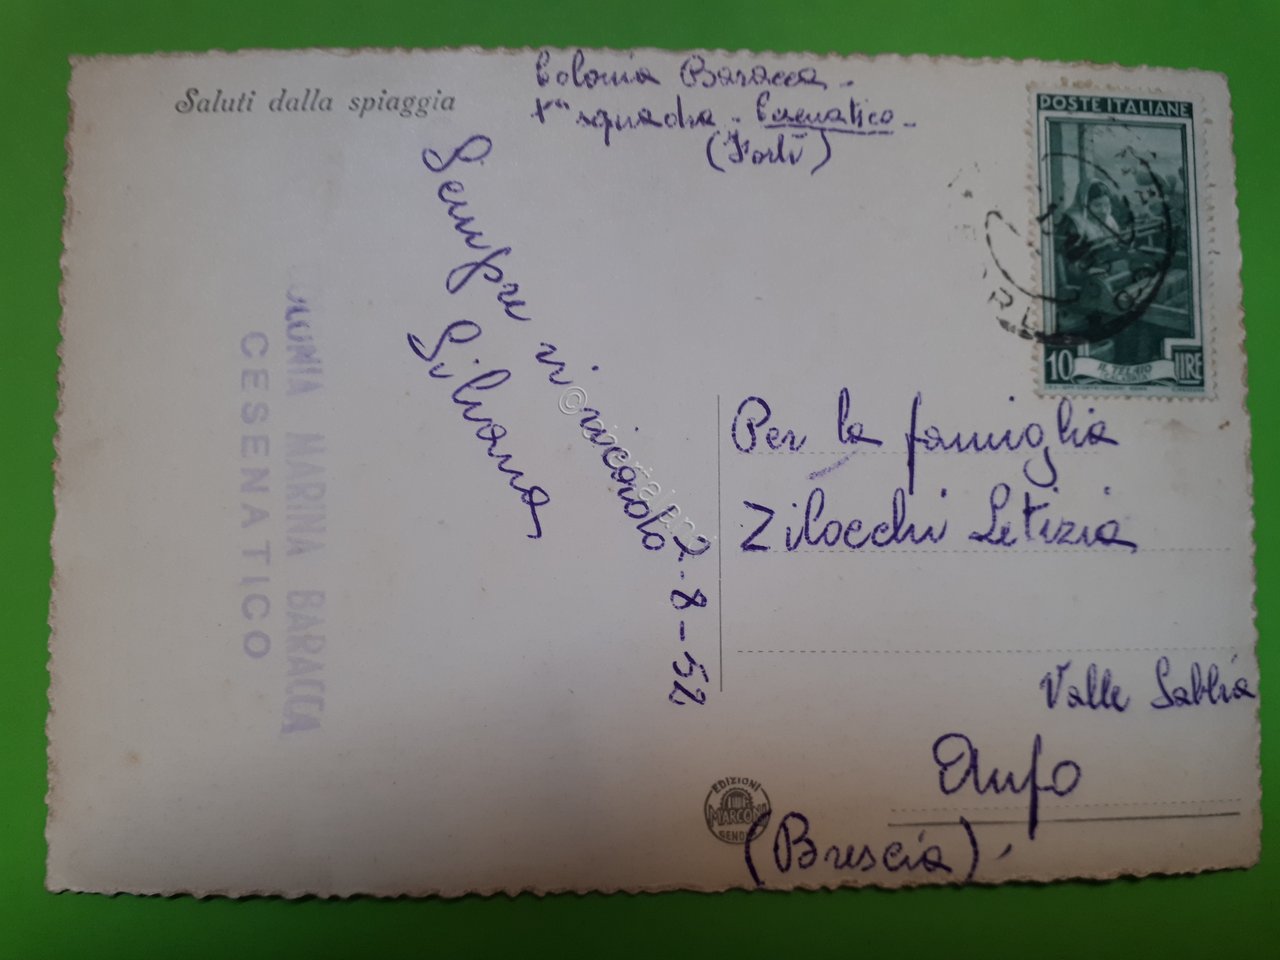 Saluti dalla spiaggia
Colonia Baracca -
squadra - Cesenatico -
(Forlì)
Sempre vi ricordo
Silvana
2-8-52
COLONIA MARINA BARACCA
CESENATICO
POSTE ITALIANE
10 LIRE
IL TELAIO
Per la famiglia
Zilocchi Letizia
Valle Sabbia
Anfo
(Brescia).
EDIZIONI
MARCONI
GENOVA